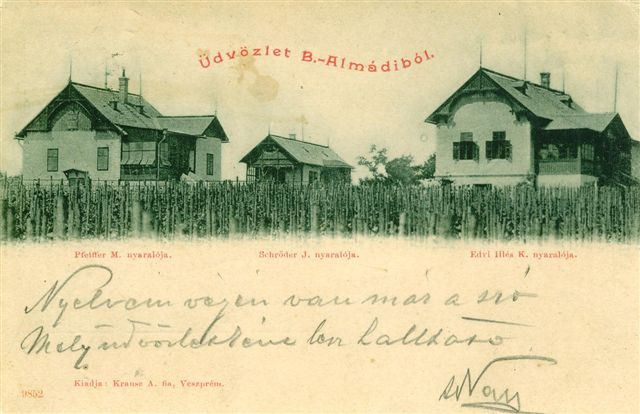 Üdvözlet B.-Almádiból.
Pfeiffer M. nyaralója. Schröder J. nyaralója. Edvi Illés K. nyaralója.
Nyelvem végén van már a szó
Mely üdvözletkéne lesz hallható
Kiadja: Krausz A. fia, Veszprém.
9852